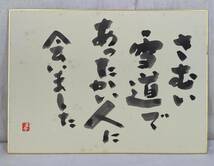 さむい
雪道で
あったかい人に
会いました